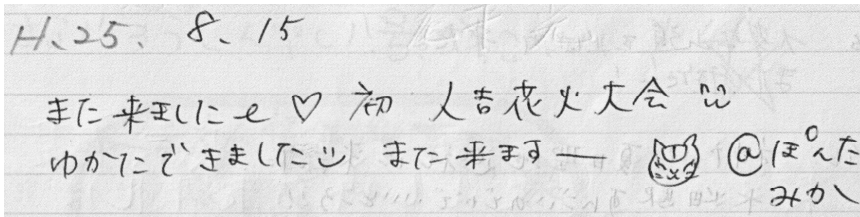 H、25、 8、15
また来ましたe ♡ 初 人吉花火大会 ¨
ゆかたできました¨ また来ますー @ぽんた
みか